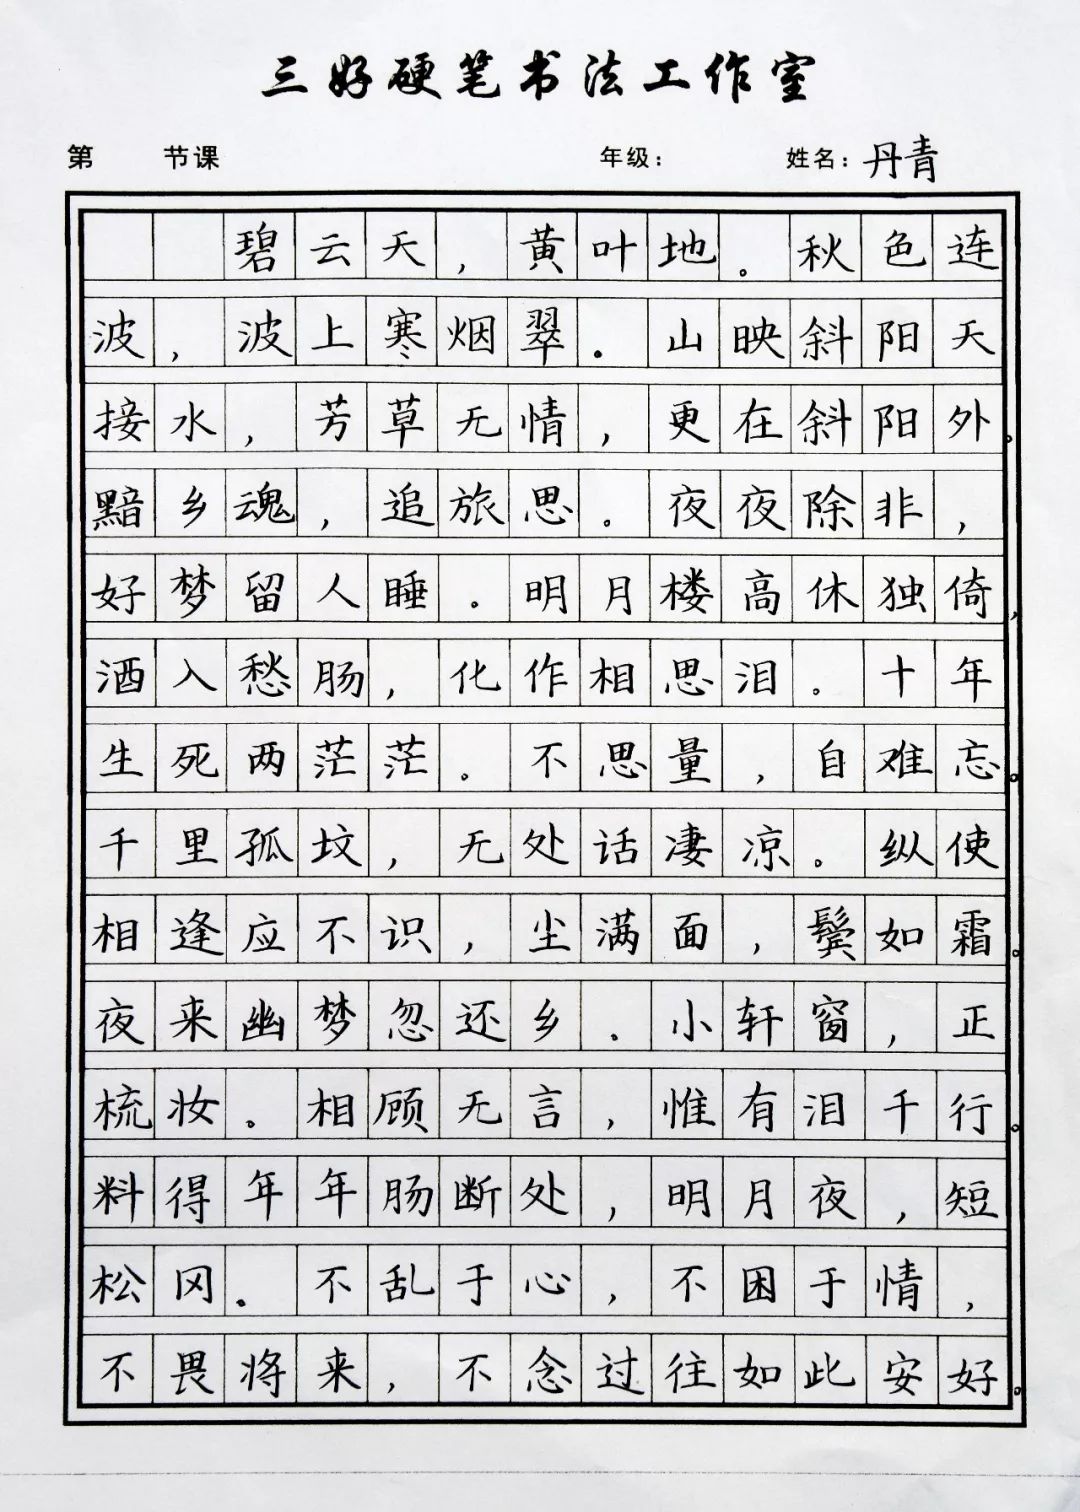 三好硬笔书法工作室
第 节课 年级： 姓名：丹青
碧云天，黄叶地。秋色连
波，波上寒烟翠。山映斜阳天
接水，芳草无情，更在斜阳外。
黯乡魂，追旅思。夜夜除非，
好梦留人睡。明月楼高休独倚，
酒入愁肠，化作相思泪。十年
生死两茫茫。不思量，自难忘。
千里孤坟，无处话凄凉。纵使
相逢应不识，尘满面，鬓如霜。
夜来幽梦忽还乡。小轩窗，正
梳妆。相顾无言，惟有泪千行。
料得年年肠断处，明月夜，短
松冈。不乱于心，不困于情，
不畏将来，不念过往如此安好。